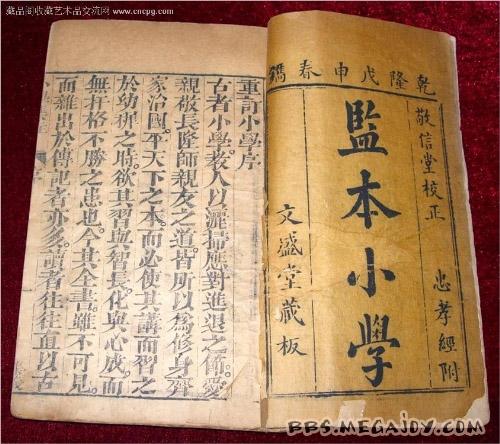 藏品阁收藏艺术品交流网
www.cncpg.com
乾隆戊申春鐫
敬信堂校正
忠孝經附
監本小學
文盛堂藏板
重訂小學序
古者小學。教人以灑掃應對進退之節。愛
親敬長隆師親友之道。皆所以為修身齊
家治國。平天下之本。而必使其講而習之
於幼穉之時。欲其習與智長。化與心成。而
無扞格不勝之患也。今其全書。雖不可見。
而雜出於傳記者亦多。讀者往往直以古
BBS.MEGAJOY.COM